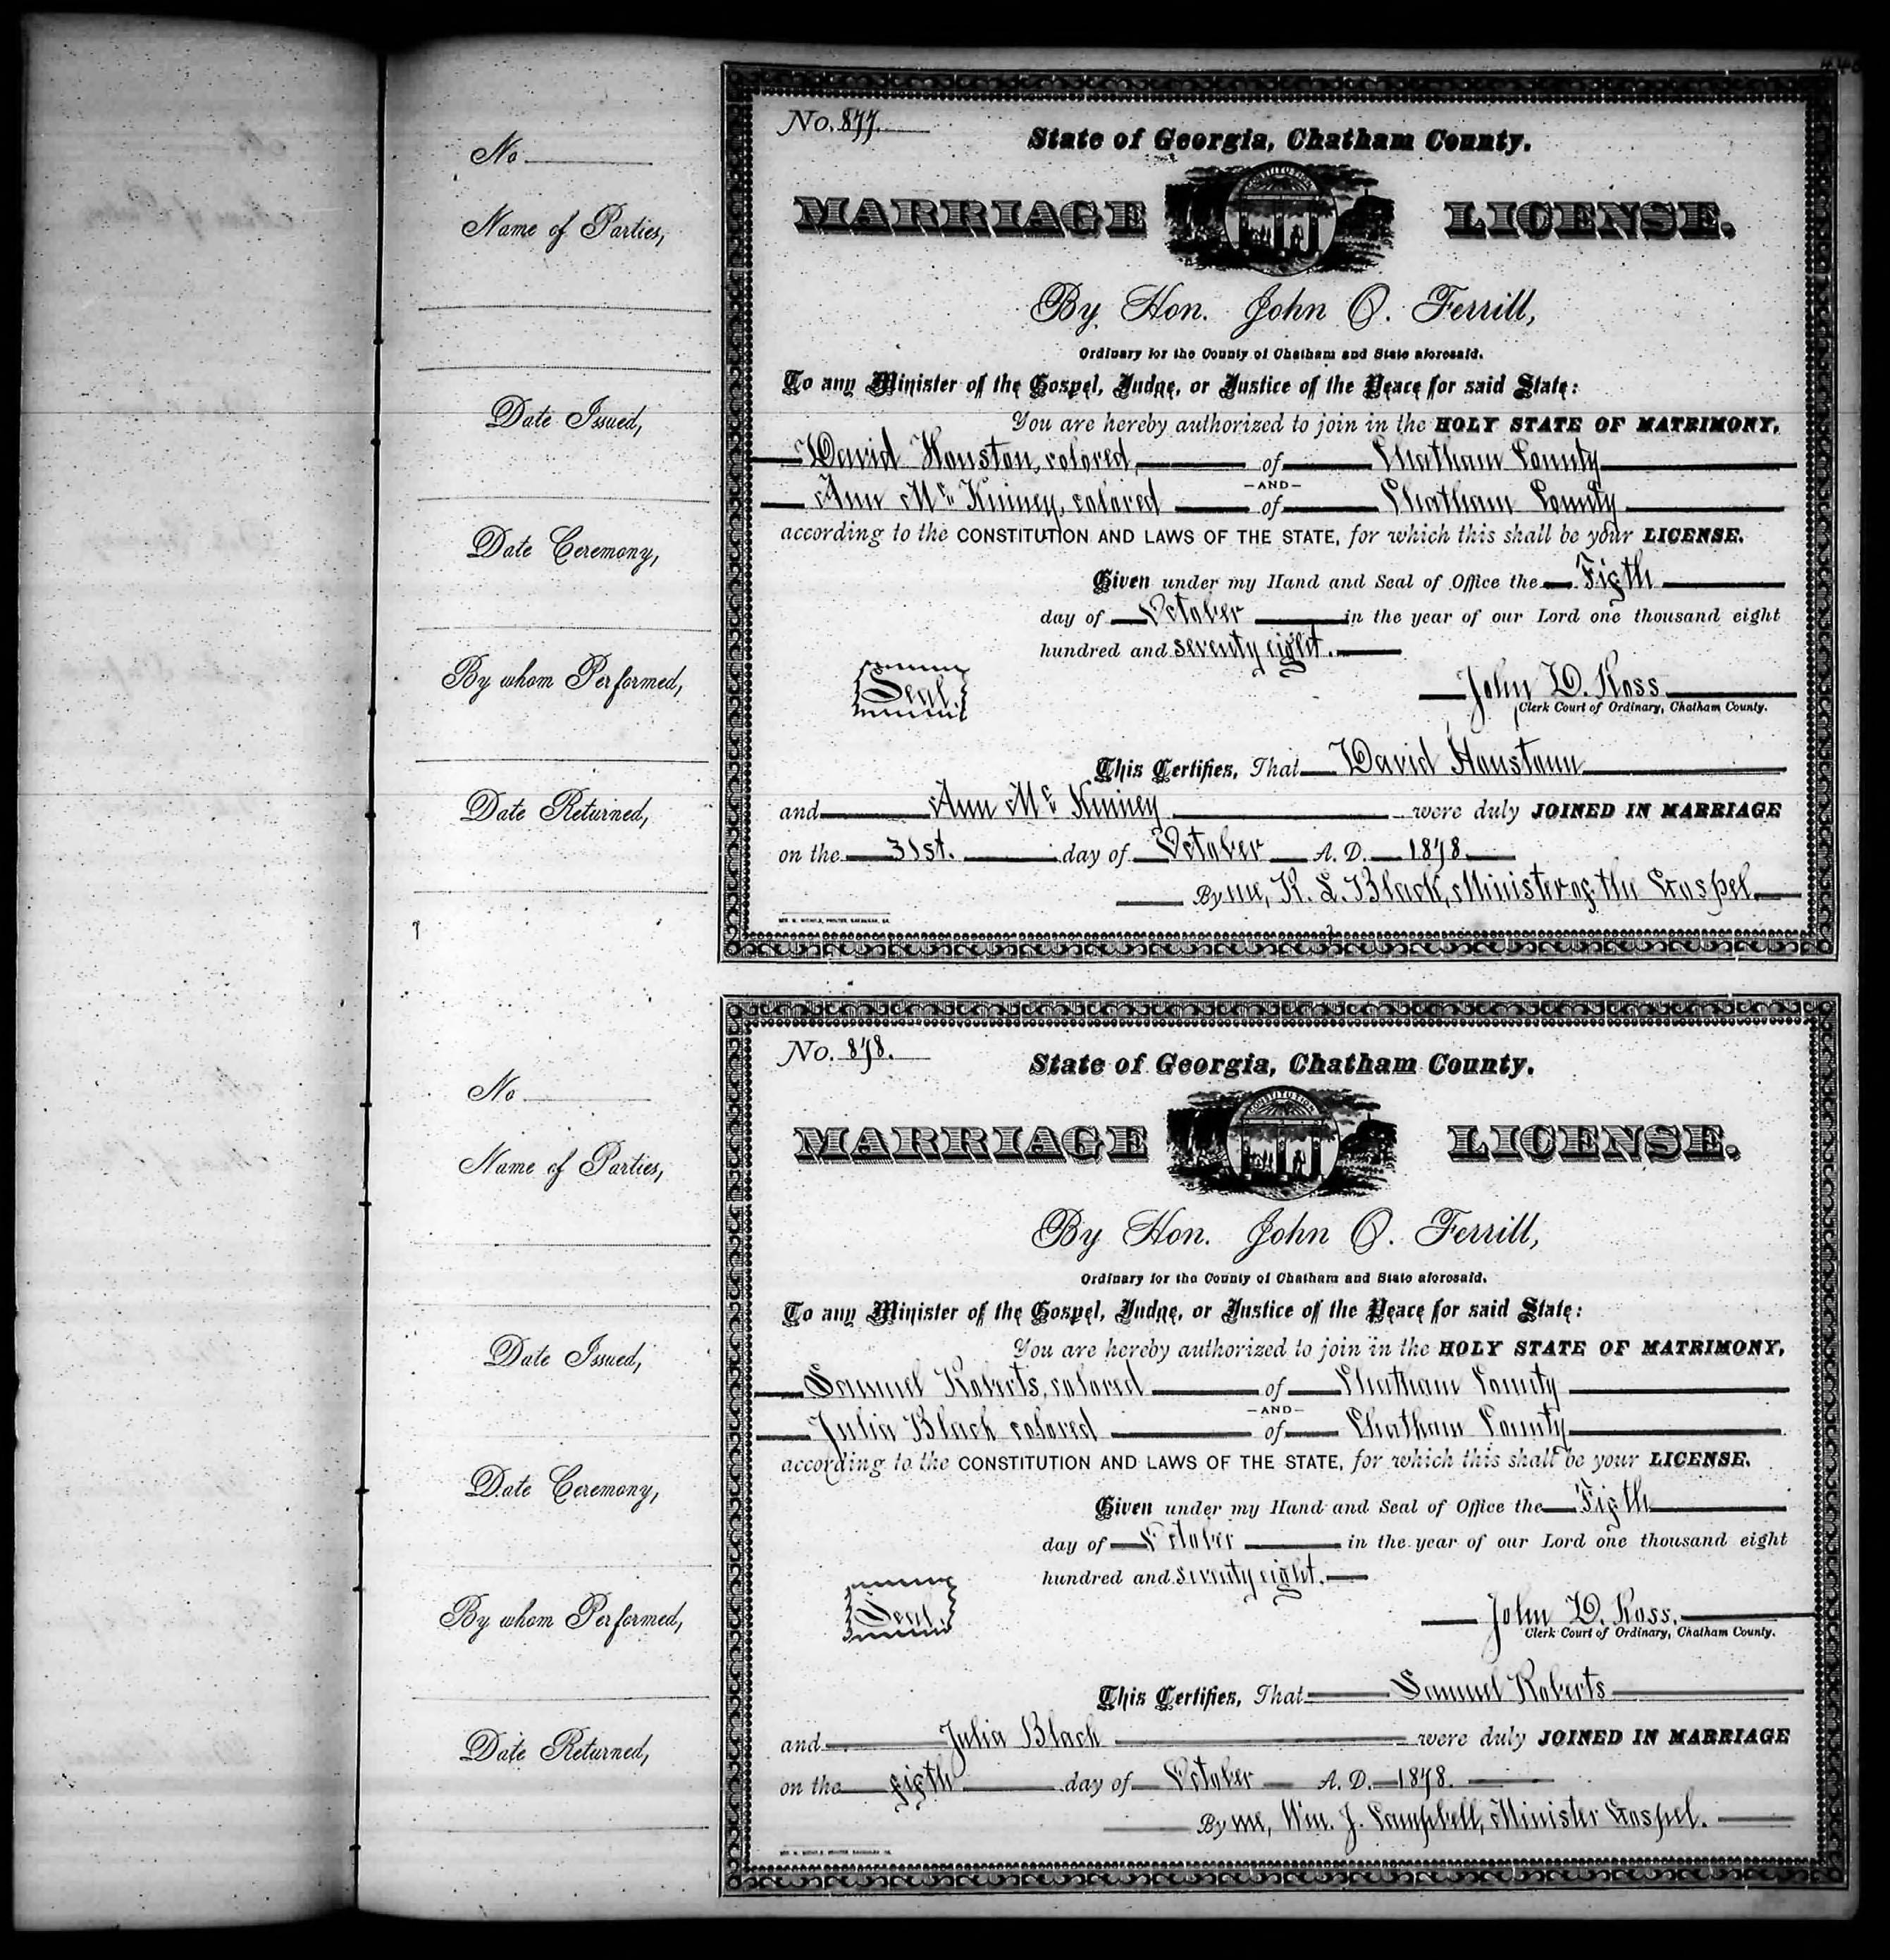 No.
Name of Parties,
Date Issued,
Date Ceremony,
By whom Performed,
Date Returned,
No. 877.
State of Georgia, Chatham County.
CONSTITUTION
MARRIAGE LICENSE.
By Hon. John O. Ferrill,
Ordinary for the County of Chatham and State aforesaid.
To any Minister of the Gospel, Judge, or Justice of the Peace for said State:
You are hereby authorized to join in the HOLY STATE OF MATRIMONY,
David Houston, colored, of Chatham County
-AND-
Ann McKinney, colored of Chatham County
according to the CONSTITUTION AND LAWS OF THE STATE, for which this shall be your LICENSE.
Given under my Hand and Seal of Office the Fifth
day of October in the year of our Lord one thousand eight
hundred and seventy eight.
Seal.
John D. Ross
Clerk Court of Ordinary, Chatham County.
This Certifies, That David Houstoun
and Ann McKinney were duly JOINED IN MARRIAGE
on the 31st. day of October A. D. 1878
By me, K. S. Black, Minister of the Gospel
No.
Name of Parties,
Date Issued,
Date Ceremony,
By whom Performed,
Date Returned,
No. 878.
State of Georgia, Chatham County.
CONSTITUTION
MARRIAGE LICENSE.
By Hon. John O. Ferrill,
Ordinary for the County of Chatham and State aforesaid.
To any Minister of the Gospel, Judge, or Justice of the Peace for said State:
You are hereby authorized to join in the HOLY STATE OF MATRIMONY,
Samuel Roberts, colored of Chatham County
-AND-
Julia Black colored of Chatham County
according to the CONSTITUTION AND LAWS OF THE STATE, for which this shall be your LICENSE.
Given under my Hand and Seal of Office the Fifth
day of October in the year of our Lord one thousand eight
hundred and seventy eight.
Seal.
John D. Ross.
Clerk Court of Ordinary, Chatham County.
This Certifies, That Samuel Roberts
and Julia Black were duly JOINED IN MARRIAGE
on the fifth day of October A. D. 1878.
By me, Wm. J. Campbell, Minister Gospel.